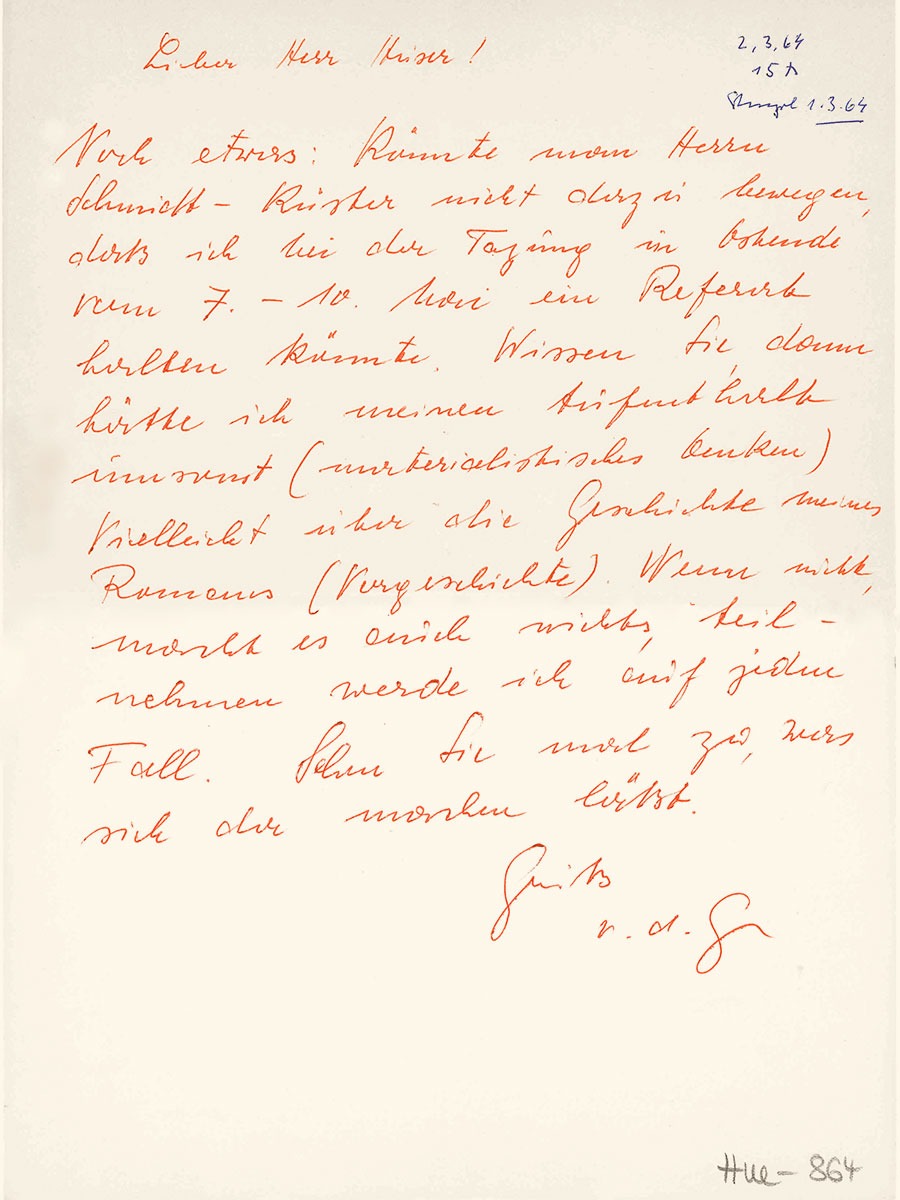 Lieber Herr Hüser!
2.3.64
15 h
Stempel 1.3.64
Noch etwas: Könnte man Herrn
Schmidt-Küster nicht dazu bewegen,
daß ich bei der Tagung in Ostende
vom 7. – 10. Mai ein Referat
halten könnte. Wissen Sie, dann
hätte ich meinen Aufenthalt
umsonst (materialistisches Denken)
Vielleicht über die Geschichte meines
Romans (Vorgeschichte). Wenn nicht,
macht es auch nichts, teil-
nehmen werde ich auf jeden
Fall. Sehen Sie mal zu, was
sich da machen läßt.
Gruß
v. d. Gr
Hue – 864